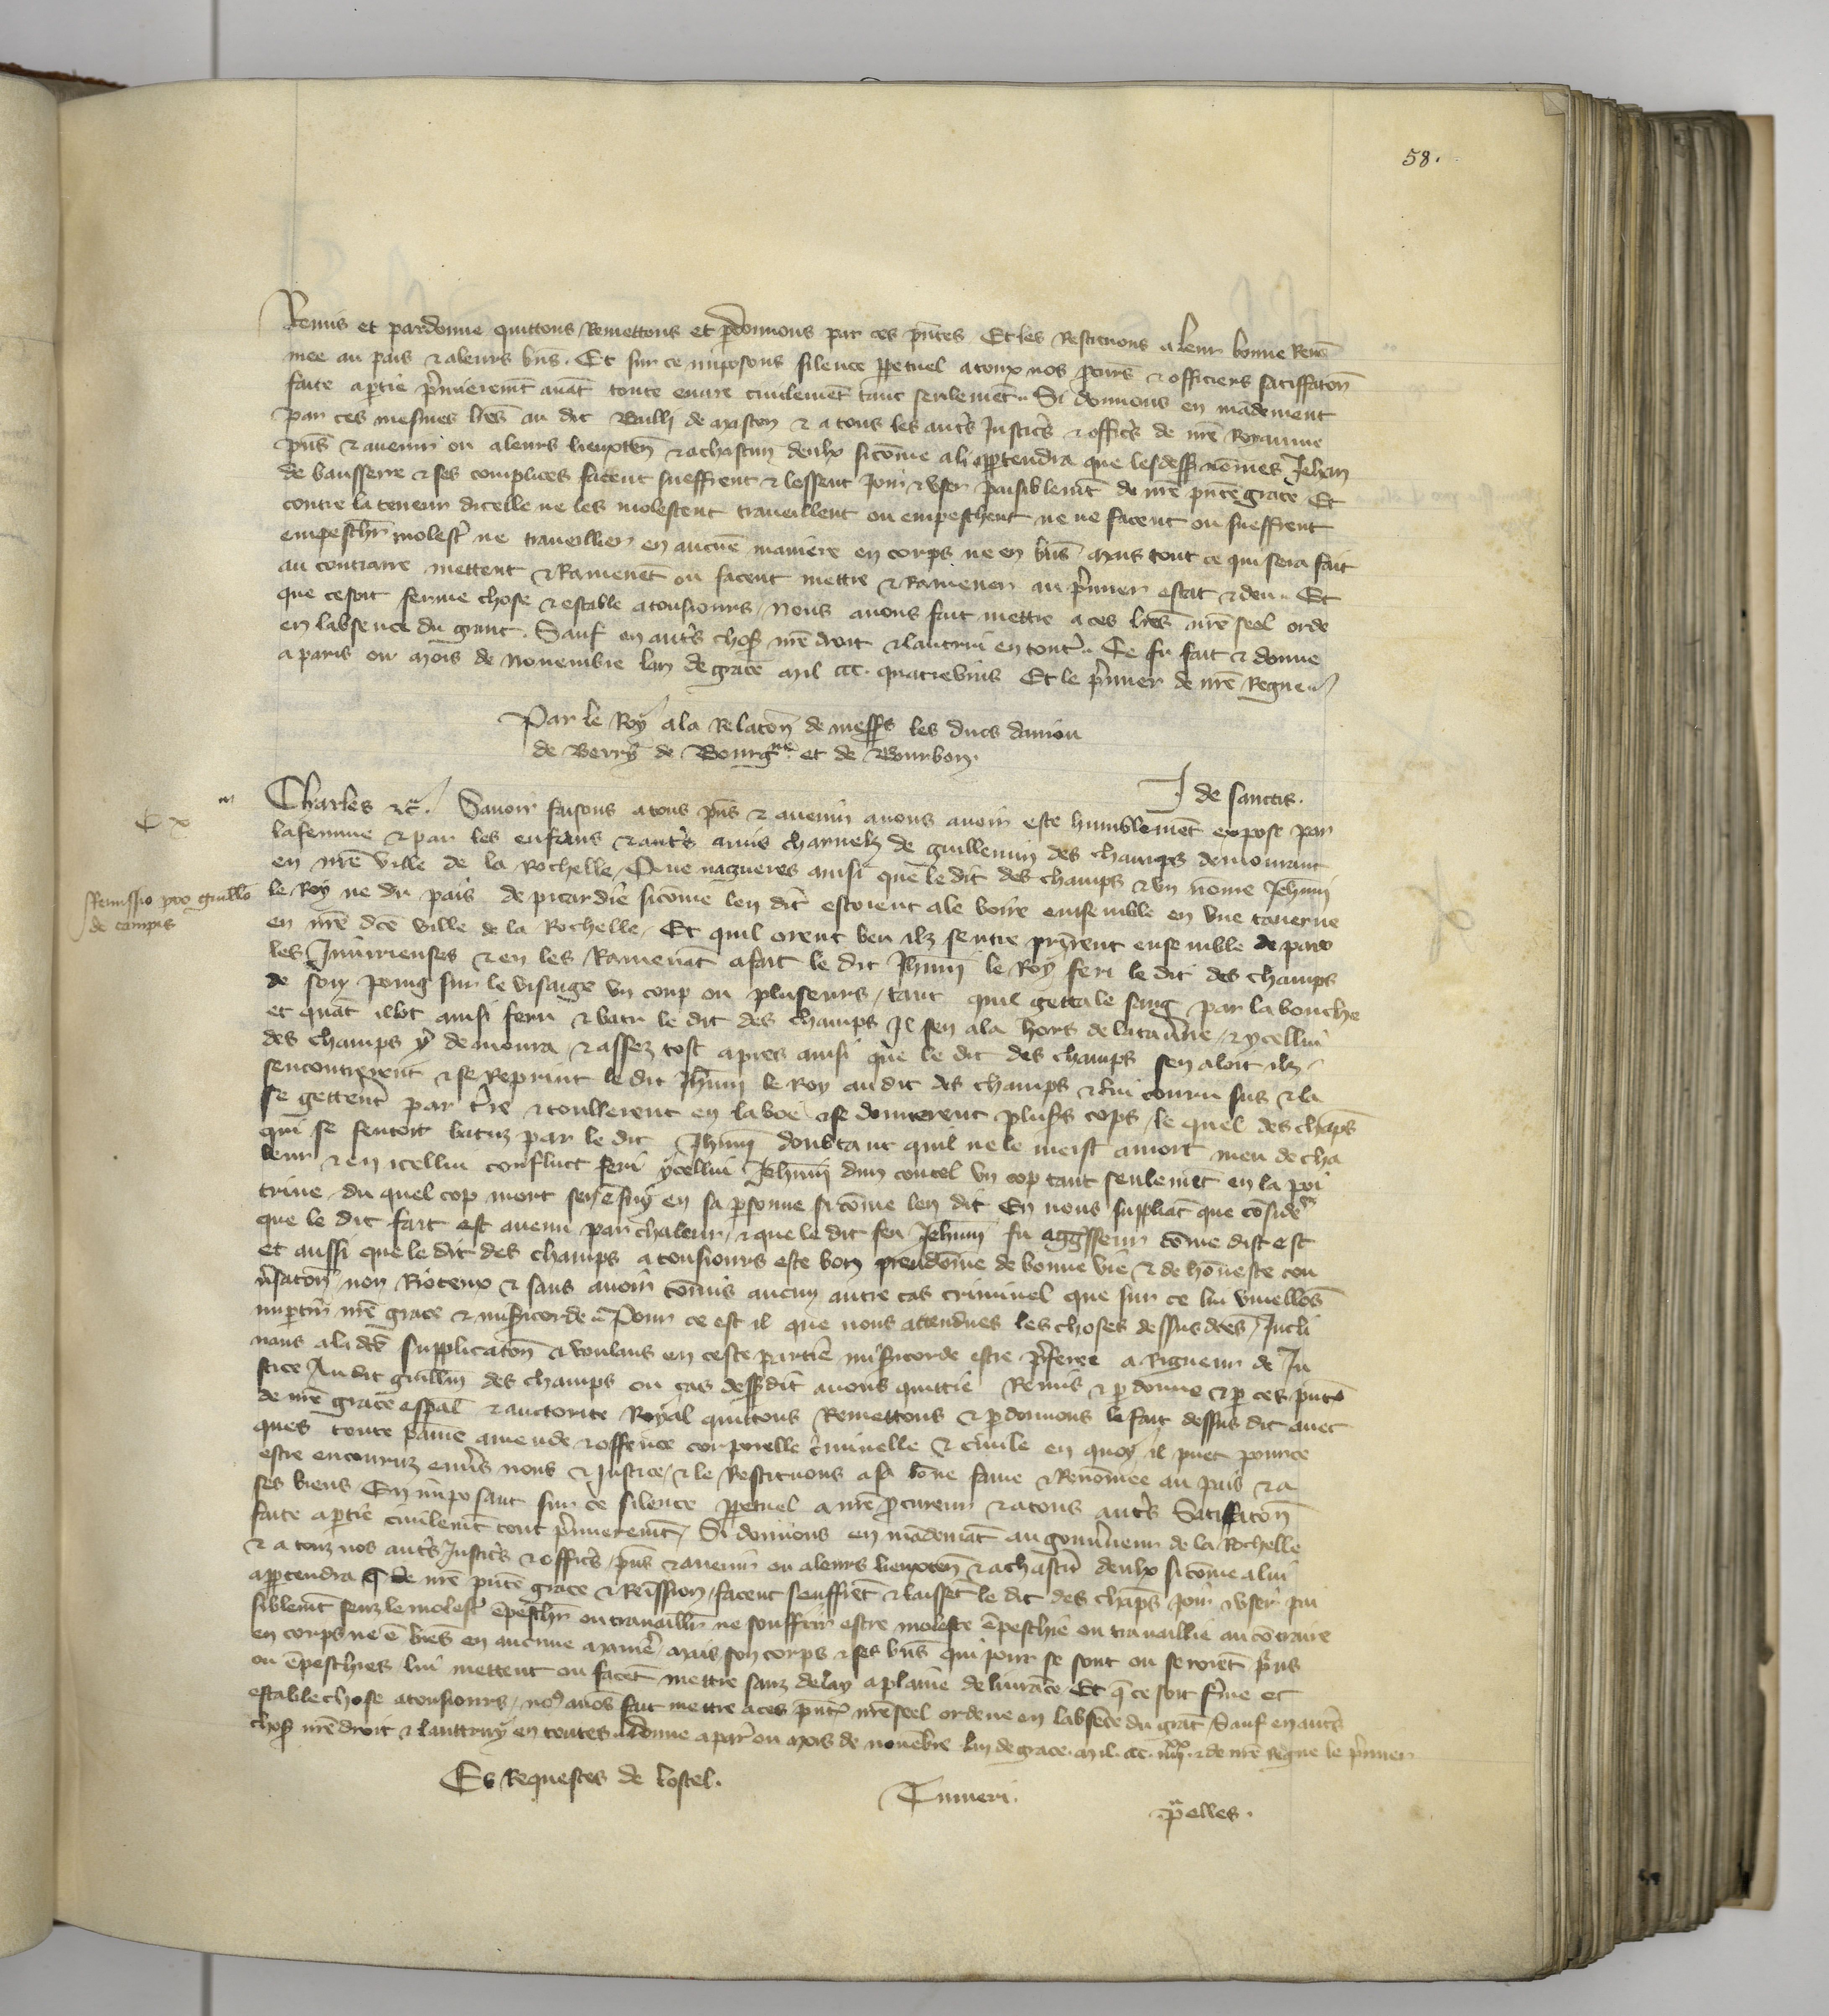 58.
Remis et pardonne quittons Remettons et pdonnons par ces pñtes Et les Restituons a leur bonne Renō
mee au pais & a leurs bñs. Et sur ce imposons silence ppetuel a touz nos pcurs & officiers satiffatoñ
faite a ptie p̃mierem̃t auāt toute euure ciuilemēt tant seulemēt. Si donnons en mādement
par ces mesmes lr̃es au dit Bailli de mascon & a tous les aut̃s Justic̃s & offic̃s de nr̃e Royaume
pñs & auenir ou a leurs lieuxteñ & a chascun deulx sicōme a li apptendra que les dess nōmes Jehan
de bausserre & ses complices facent sueffrent & lessent Joir & vser paisiblemt̃ de nr̃e pñte grace Et
contre la teneur dicelle ne les molestent trauaillent ou empeschent ne ne facent ou sueffrent
empesch̃r molest̃ ne trauaillier en aucūe maniere en corps ne en bñs mais tout ce qui sera fait
au contraire mettent & Ramenēt ou facent mettre & Ramener au p̃mier estat & deu. Et
que ce soit ferme chose & estable a tousiours Nous auons fait mettre a ces lr̃es nr̃e seel orde
en labsence du grant. Sauf en aut̃s chos nr̃e droit & lautrui en tout̃. Ce fu fait & donne
a paris ou mois de Nouembre lan de grace mil ccc. quatrevins Et le p̃mier de nr̃e Regne
Par le Roy a la Relatoñ de mess̃s les ducs daniou
de Berry de Bourgne. et de Bourbon.
J de sanctis.
Charles &c̃. Sauoir faisons a tous pñs & auenir a nous auoir este humblemēt expose par
la femme & par les enfans & aut̃s amis charnelz de guillemin des champs demourant
en nr̃e ville de la Rochelle, Que nagueres ainsi que le dit des champs & vn nōme Jehañin
le Roy ne du pais de picardie sicōme len dit estoient ale boire ensemble en vne tauerne
en nr̃e dc̃e ville de la Rochelle, Et quil orent beu ilz sentre prirent ensemble de paro
les Iniurieuses & en les Ramenāt a fait le dit Jhañin le Roy feri le dit des champs
de son poing sur le visaige vn coup ou pluseurs, tant quil getta le sang par la bouche
et quāt il lot ainsi feru & batu le dit des champs Il sen ala hors de la tau̾ne, & ycellui
des champs y demoura, & assez tost apres ainsi que le dit des champs sen aloit ilz
sencontrerent & se Reprint le dit Jhañin le Roy au dit des champs & lui couru sus & la
se getterent par t̃re & toullerent en la boe & se donnerent plus̾s cops, le quel des chāps
qui se sentoit batuz par le dit Jhañin doubtant quil ne le meist a mort meu de cha
leur & en icellui conflict feri ycellui Jehañin dun coutel vn cop tant seulemēt en la poi
trine du quel cop mort sen ēsuy en sa psonne si cōme len dit En nous suppliāt que cōsiderē
que le dit fait est auenu par chaleur, & que le dit feu Jehañin fu aggresseur cōme dist est
et aussi que le dit des champs a tousiours este bon preudōme de bonne vie & de hōneste con
u̾satoñ non Rioteux & sans auoir cōmis aucun autre cas criminel que sur ce lui vueillōs
imptir nr̃e grace & miscorde. Pour ce est il que nous attendues les choses dessus dc̃es, Incli
nans a la dc̃e supplicatoñ & voulans en ceste partie miscorde estre p̃feree a Rigueur de Ju
stice Au dit guilliñ des champs ou cas dessdit auons quittie Remis & pdonne & p ces pñt̃s
de nr̃e grace esp̃al & auctorite Royal quittons Remettons & pdonnons le fait dessus dit auec
ques toute paine amende & offence corporelle c̃minelle & ciuile en quoy il puet pour ce
estre encouruz enu̾s nous & Justice, & le Restituons a sa bōne fame & Renōmee au pais & a
ses biens En imposant sur ce silence ppetuel a nr̃e pcureur & a tous aut̃s Satisfatoñ
faite a ptie ciuilem̃t tout p̃mierem̃t, Si donnons en mādemāt au gouu̾neur de la Rochelle
& a touz nos aut̃s Justic̃s & offic̃s, pñs & auenir ou a leurs lieuxteñ & a chascū deulx sicōme a lui
apptendra q̄ de nr̃e pñte grace & Remission, facent seuffrēt & laissēt le dit des chāps Joir & vser pai
siblemt̃ senz le molest̃ ēpesch̃r ou trauaill̃r ne souffrir estre moleste ēpeschie ou trauaillie au cōtraire
en corps ne ē biēs en aucune maniē̃, mais son corps & ses bñs qui pour se sont ou seroiēt p̃ns
ou ēpeschies, lui mettent ou facēt mettre sanz delay a plaine deliurāce Et q̄ ce soit f̾me et
estable chose a tousiours, no9 auōs fait mettre a ces pñt̃s nr̃e seel ordene en labsēce du grāt, Sauf en aut̃s
chos nr̃e droit & lauttruy en toutes. Donne a par̃ ou mois de nouēbre lan de grace. mil. ccc. iiijxx. & de nr̃e Regne le p̃mier
Es Requestes de lostel.
Tuineri.
p̃elles.
C x m
Remissio pro guill̃o
de campis